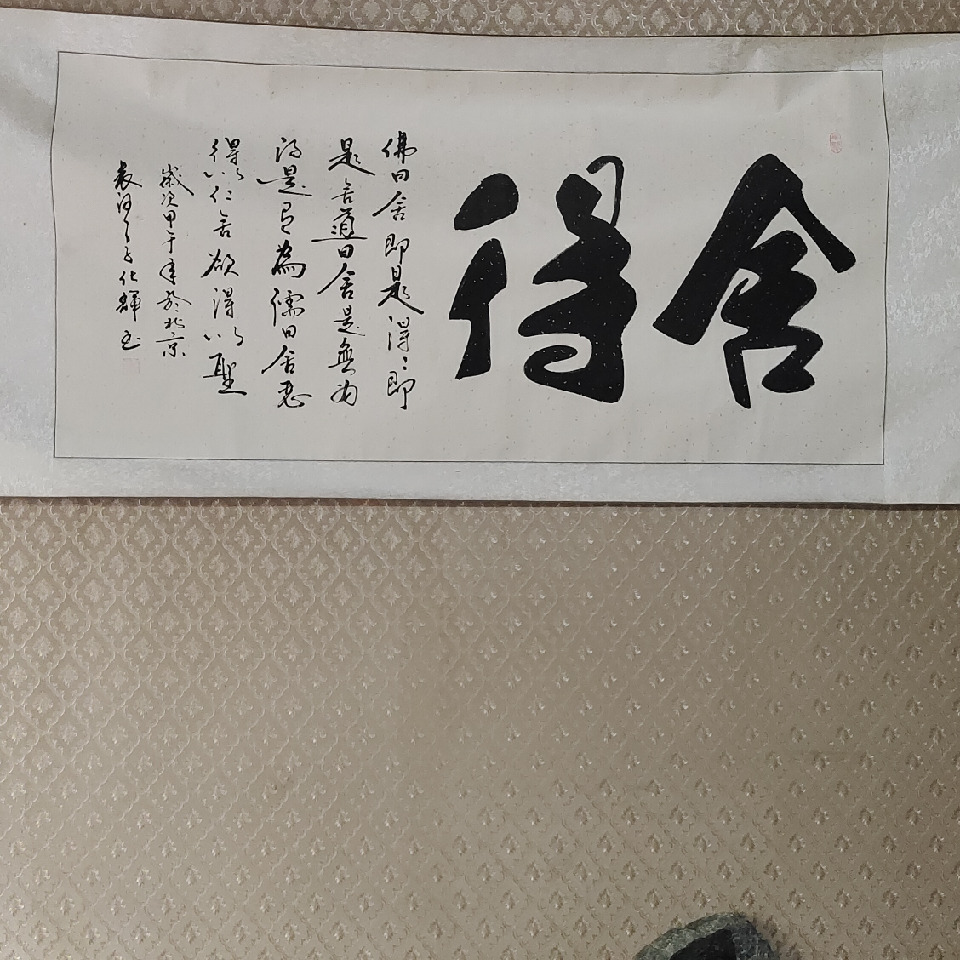 舍得
佛曰舍即是得得即
是舍道曰舍是無為
得是有為儒曰舍惡
得以仁舍欲得以聖
歲次甲午年於北京